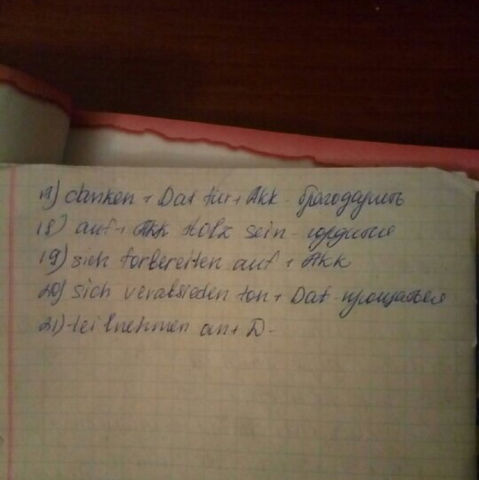 17) danken + Dat für + Akk - благодарить
18) auf + Akk stolz sein - гордиться
19) sich forbereiten auf + Akk
20) sich verabsieden fon + Dat - прощаться
21) teilnehmen an + D -